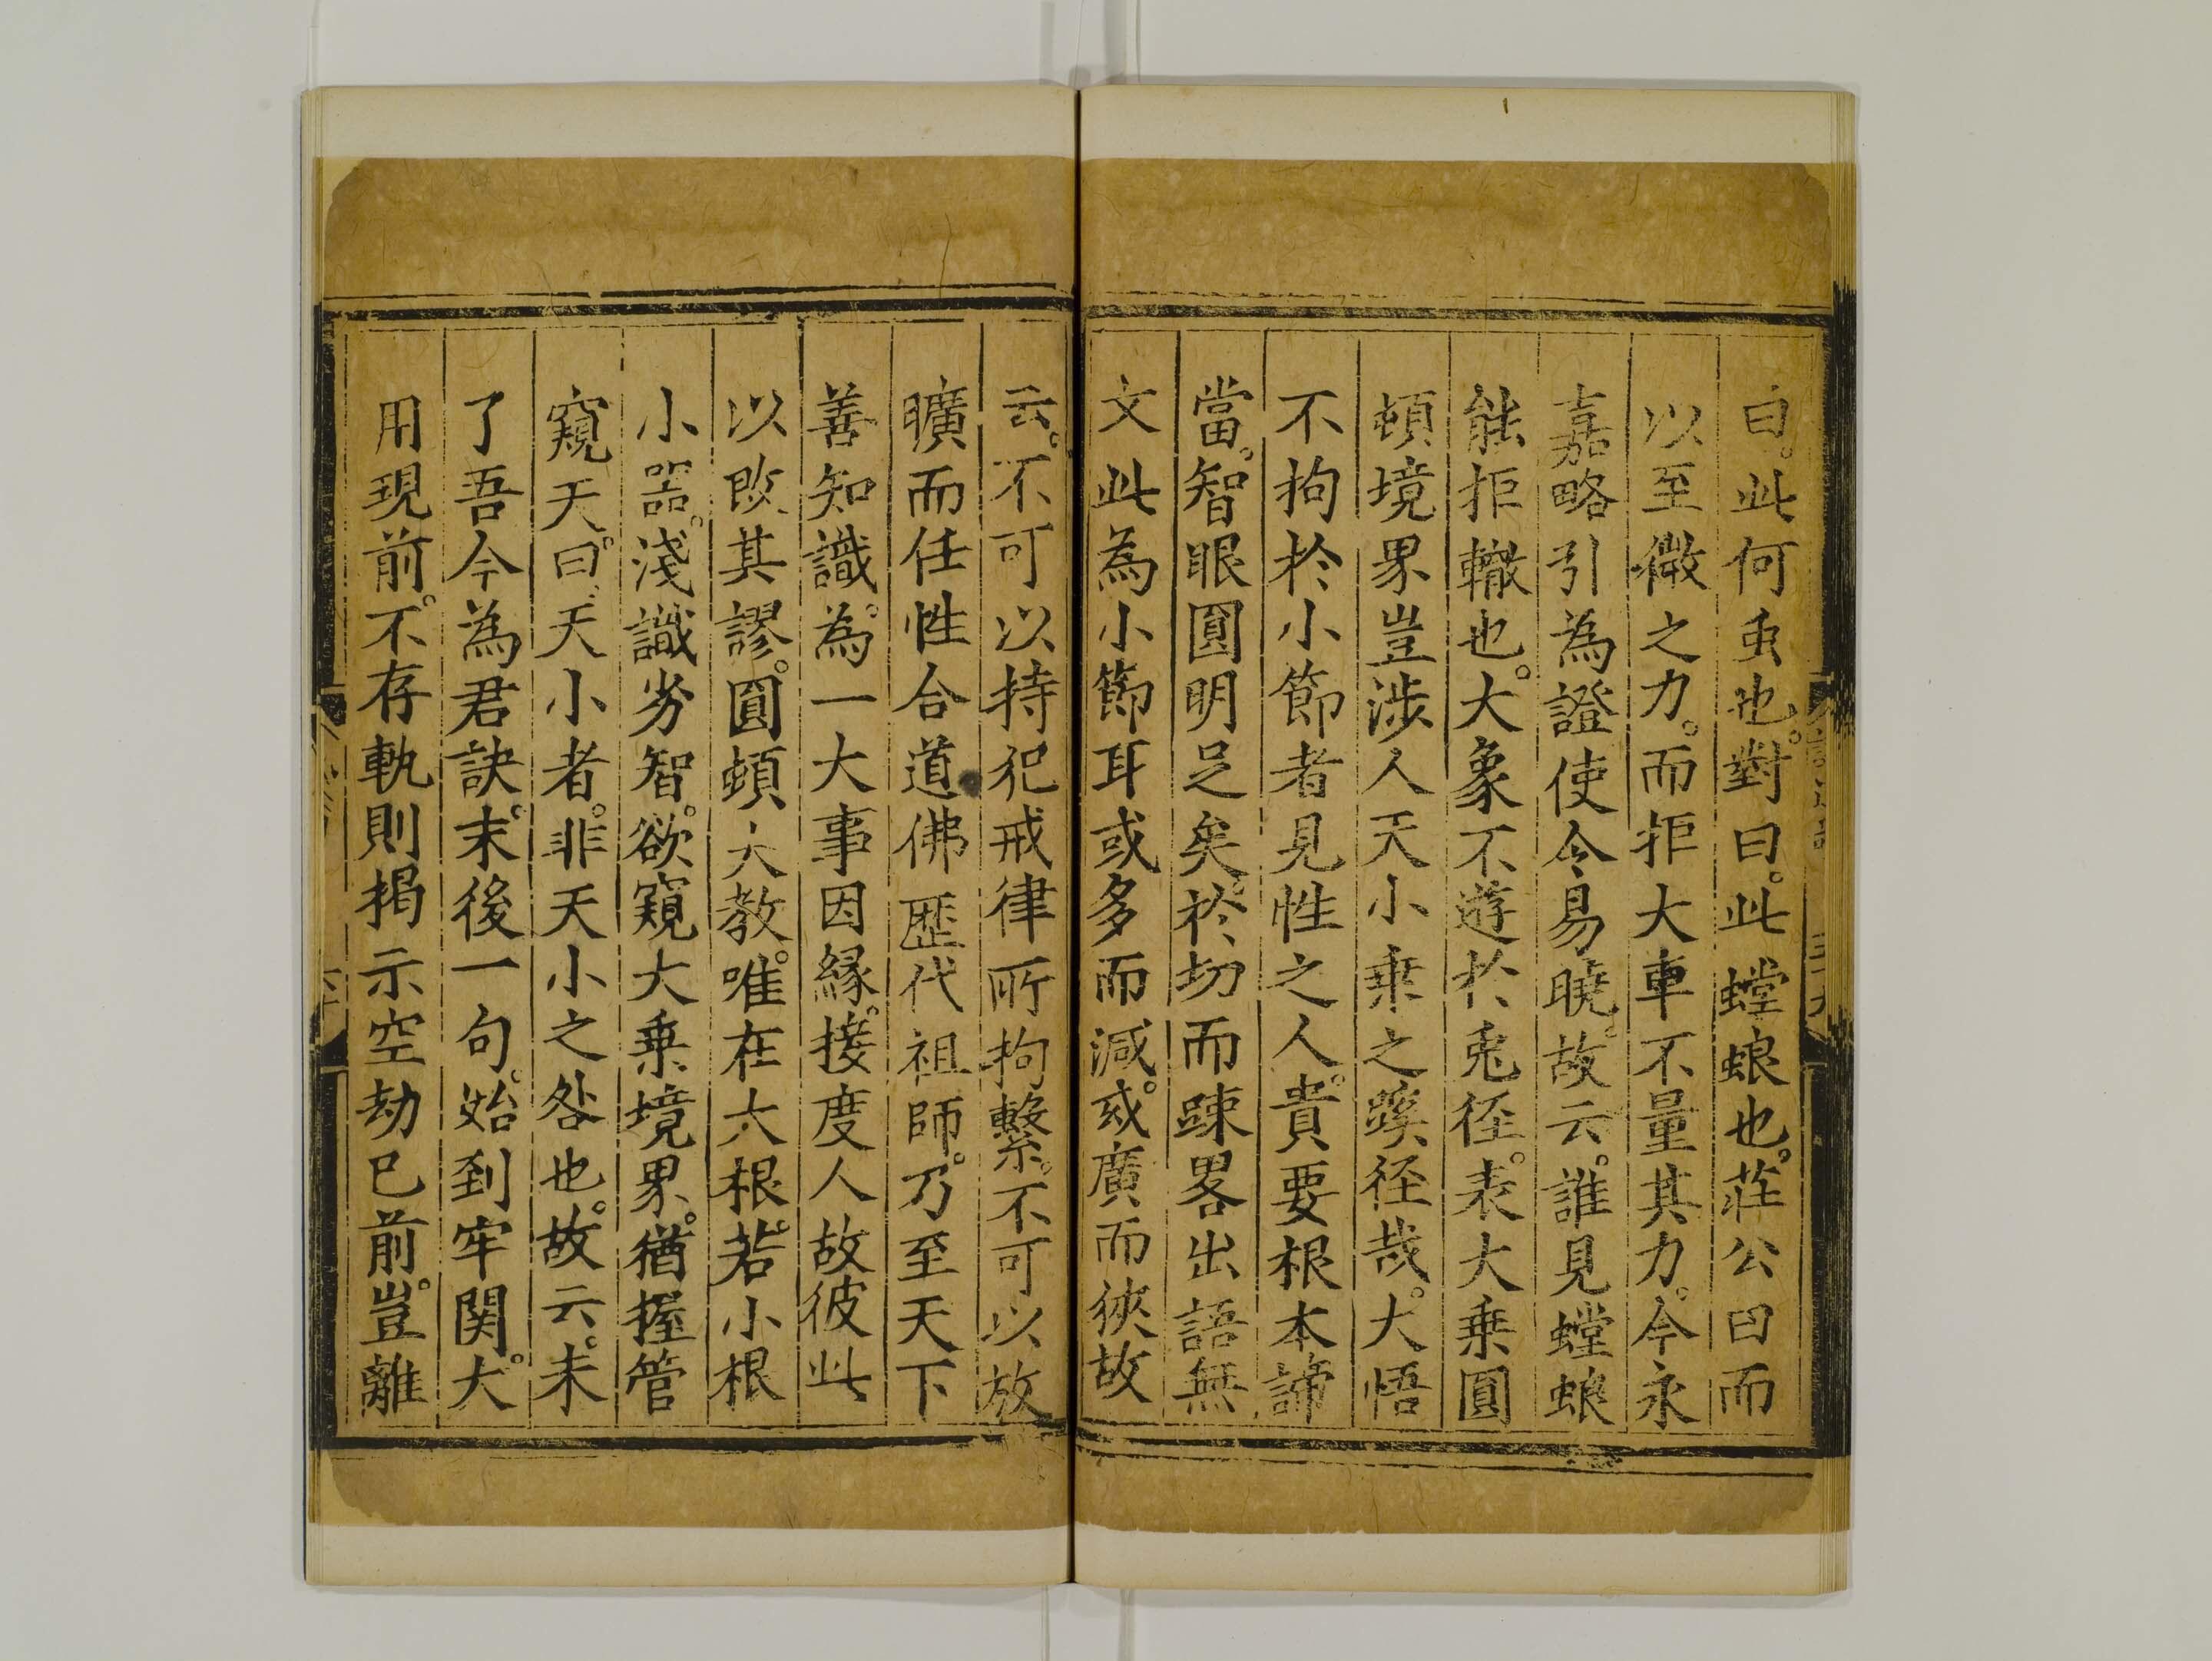 曰。此何䖝也。對曰。此螳蜋也。莊公曰而
以至微之力。而拒大車不量其力。今永
嘉略引為證使令易曉。故云。誰見螳蜋
能拒轍也。大象不遊於兎徑。表大乗圓
頓境界豈涉人天小乗之蹊徑哉。大悟
不拘於小節者見性之人。貴要根本諦
當。智眼圓明足矣。於切而踈畧出語無
文此為小節耳或多而減。或廣而狹故
云。不可以持犯戒律所拘繫。不可以放
曠而任性合道佛歷代祖師。乃至天下
善知識。為一大事因緣。接度人故彼此
以啟其謬。圓頓大教。唯在大根。若小根
小器。淺識劣智。欲窺大乗境界。猶握管
窺天。曰天小者。非天小之咎也。故云。未
了吾今為君訣。末後一句。始到牢関。大
用現前。不存軌則揭示空劫已前。豈離